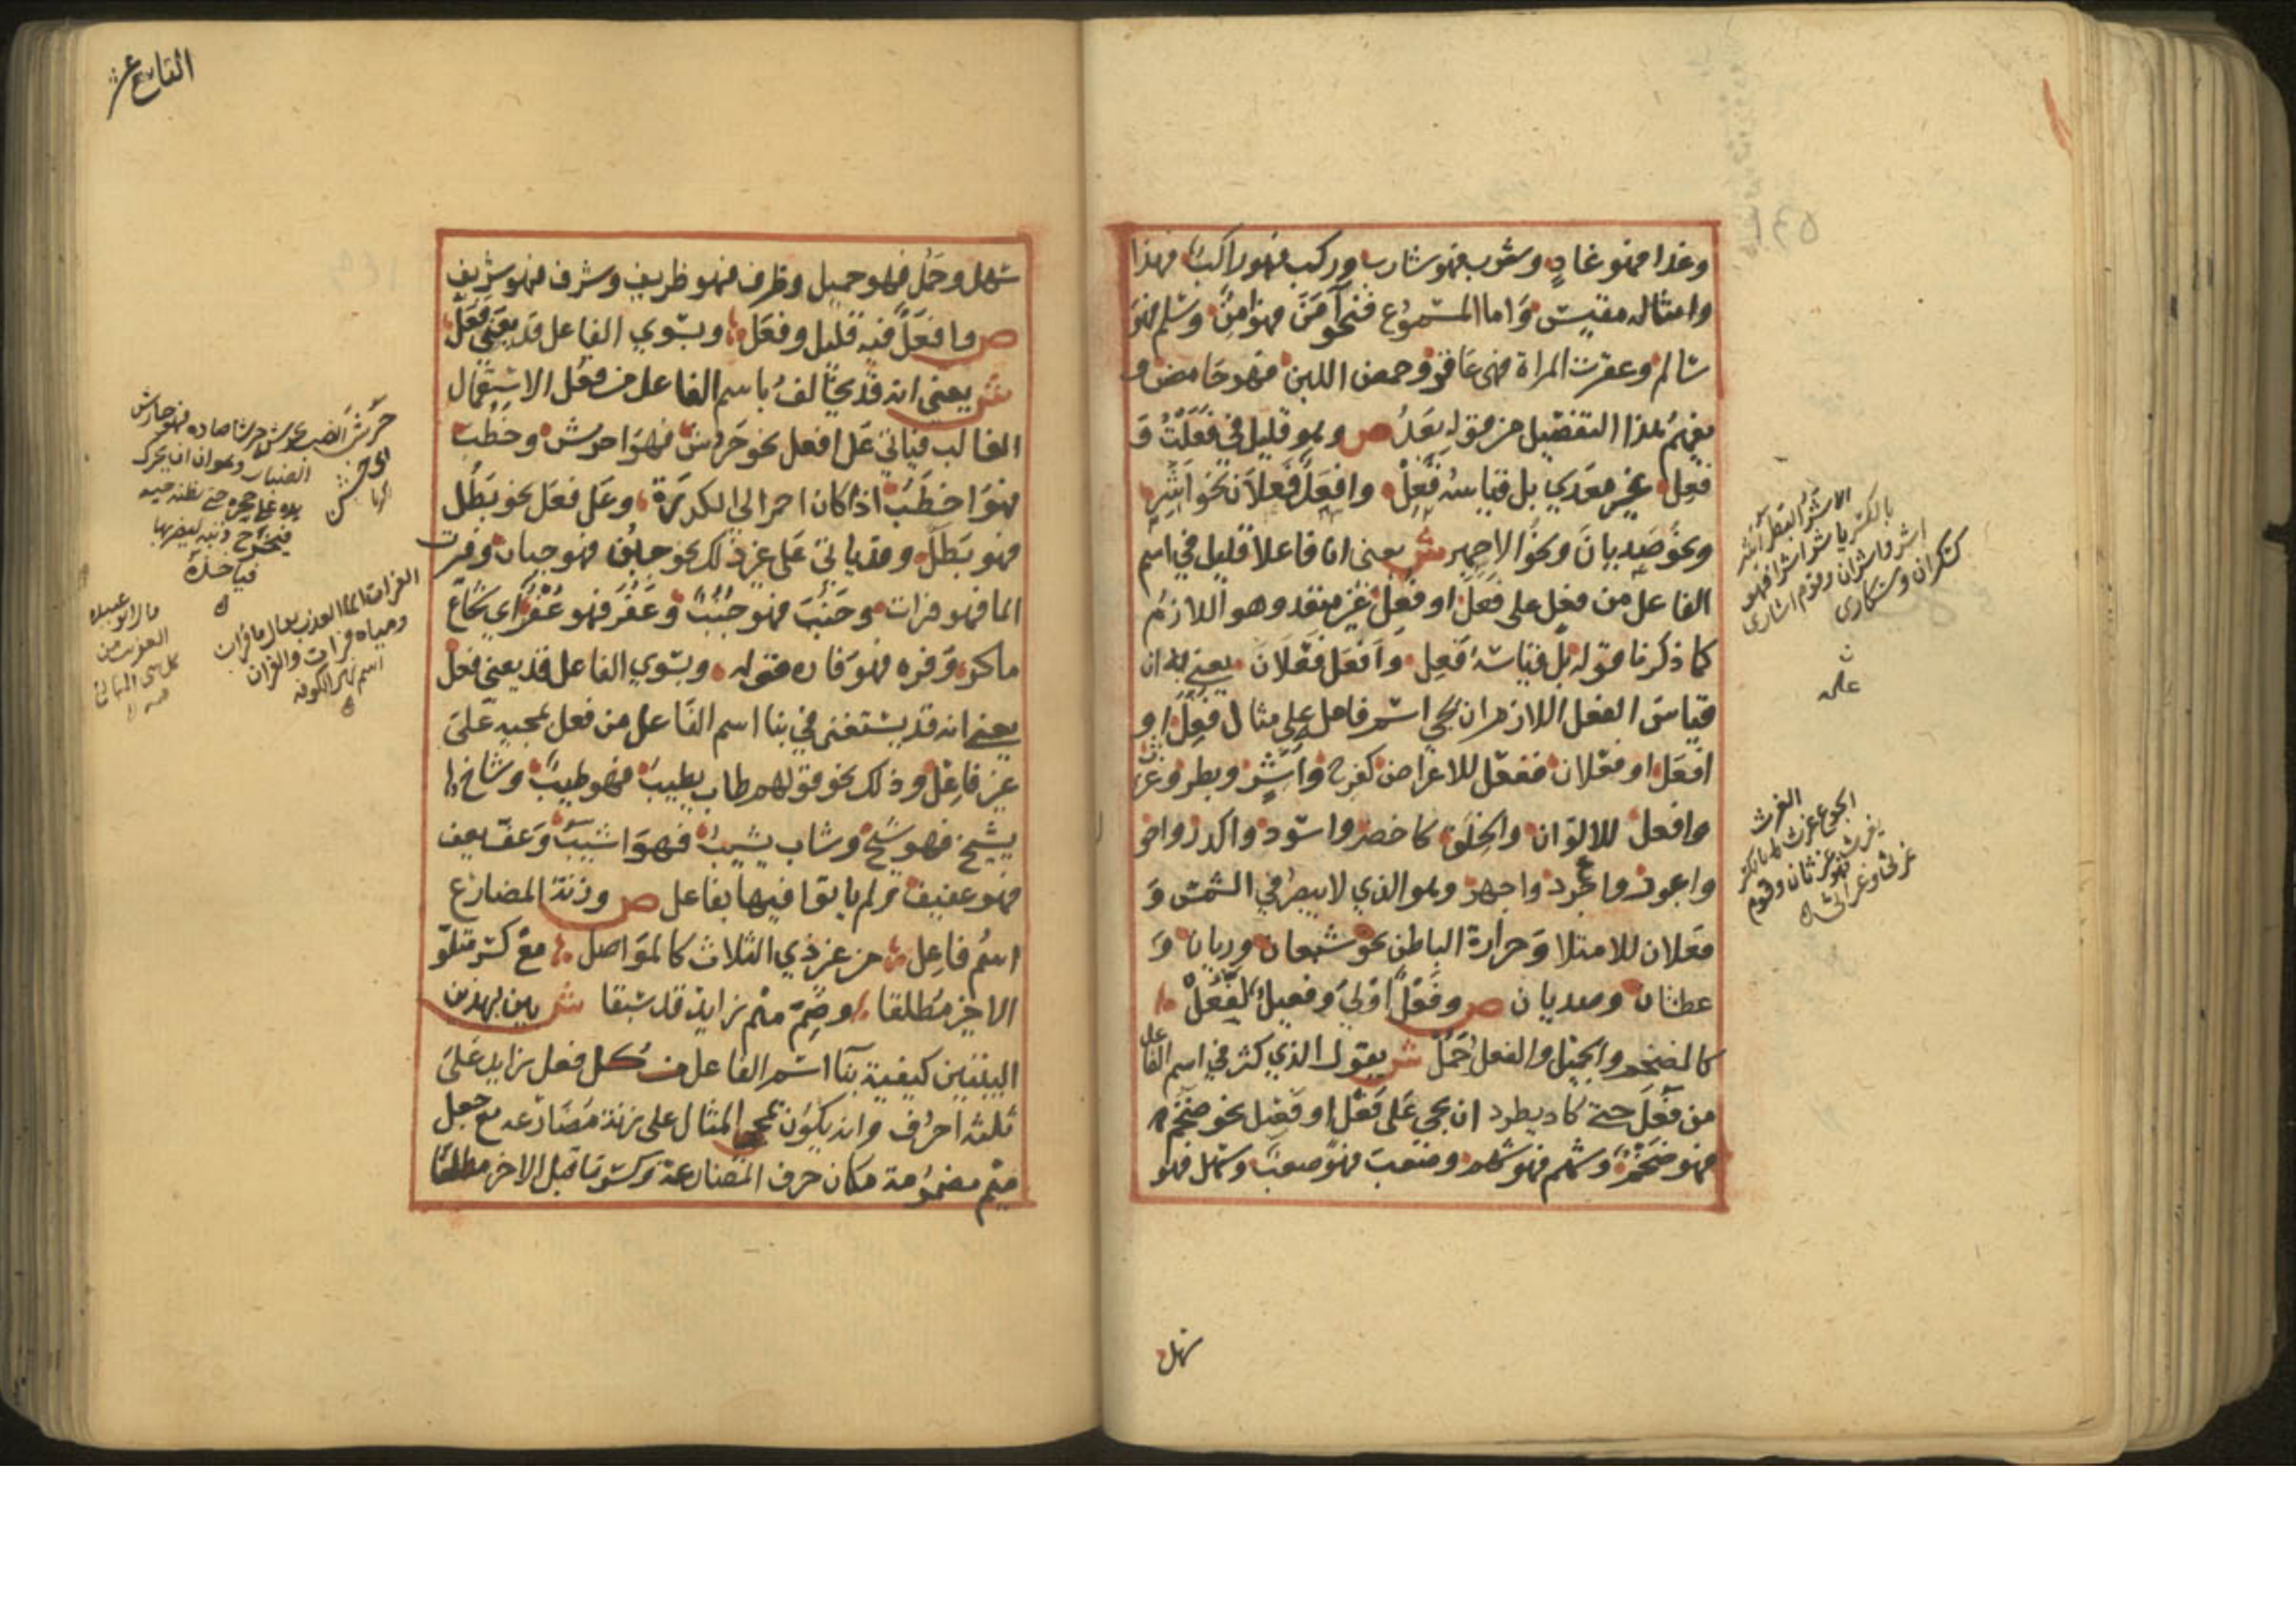 وغذا فهو غاذٍ وشرب فهو شارب وركب فهو راكب فهذا
وامثاله مقيس واما المسموع فنحو أمن فهو امن وسلم فهو
سالم وعقرت المراة فهى عاقر وحمض اللبن فهو حامض و
يفهم هذا التفضيل من قوله بعد ص وهو قليل في فعلت و
فعل غير معدي بل قياسه فعل وافعل فعلان نحو اشر
ونحو صديان ونحو الاجهر ش يعنى ان فاعلا قليل في اسم
الفاعل من فعل على فعل او فعل غير متعد وهو اللازم
كما ذكرنا قوله بل قياسه فعل وأفعل فعلان يعني به ان
قياس الفعل اللازم ان يجي اسم فاعل على مثال فعل او
افعل او فعلان ففعل للاعراض كفرح وأشر وبطر وغرث
وافعل للالوان والخلق كاخضر واسود واكدر واحو
واعور واجهر وهو الذي لا يبصر في الشمس و
فعلان للامتلا وحرارة الباطن نحو شبعان وريان و
عطشان وصديان ص وفعل اولي وفعيل بفعل
كالضخم والجميل والفعل جمل ش يقول الذي كثر في اسم الفاعل
من فعل حتى كاد يطرد ان يجي على فعل او فعيل نحو ضخم
فهو ضخم وشهم فهو شهم وصعب فهو صعب وسهل فهو
سهل
الاشر البطر اشر
بالكسر ياشر اشرا فهو
اشر واشران وقوم اشارى
كسكران وسكارى
الغرث
الجوع غرث بالكسر
يغرث فهو غرثان وقوم
غرثى وغراثى
التاسع عشر
سهل وجمل فهو جميل وظرف فهو ظريف وشرف فهو شريف
ص وافعل فيه قليل وفعل وبسوي الفاعل قد يغني فعل
ش يعني انه قد يخالف باسم الفاعل من فعل الاستعمال
الغالب فياتي على افعل نحو حرش فهو احرش وخطب
فهو اخطب اذا كان احمر الي الكدرة وعلى فعل نحو بطل
فهو بطل وقد ياتي على غير ذلك نحو جبن فهو جبان وفرت
الما فهو فرات وجنب فهو جنب وعفر فهو عفر أي شجاع
ماكر وفره فهو فاره قوله وبسوي الفاعل قد يغني فعل
يعني انه قد يستغنى في بنا اسم الفاعل من فعل بمجيه على
غير فاعل وذلك نحو قولهم طاب يطيب فهو طيب وشاخ
يشيخ فهو شيخ وشاب يشيب فهو اشيب وعف يعف
فهو عفيف ولم ياتوا فيها بفاعل ص وزنة المضارع
اسم فاعل من غير ذي الثلاث كالمواصل مع كسر متلو
الاخير مطلقا وضم ميم زايد قد سبقا ش بين بهذين
البيتين كيفية بنا اسم الفاعل من كل فعل زايد على
ثلثة احرف وانه يكون بمجي المثال على زنة مضارعه مع جعل
ميم مضمومة مكان حرف المضارعة وكسر ما قبل الاخر مطلقا
حرش الضب يحرش حرشا صاده فهو حارش
الضباب وهو ان يحرك
يده على جحره حتى يظنه حية
فيخرج ذنبه ليضربها
فياخذه
الفرات الما العذب يقال ما فرات
ومياه فرات والفرات
اسم نهر الكوفه